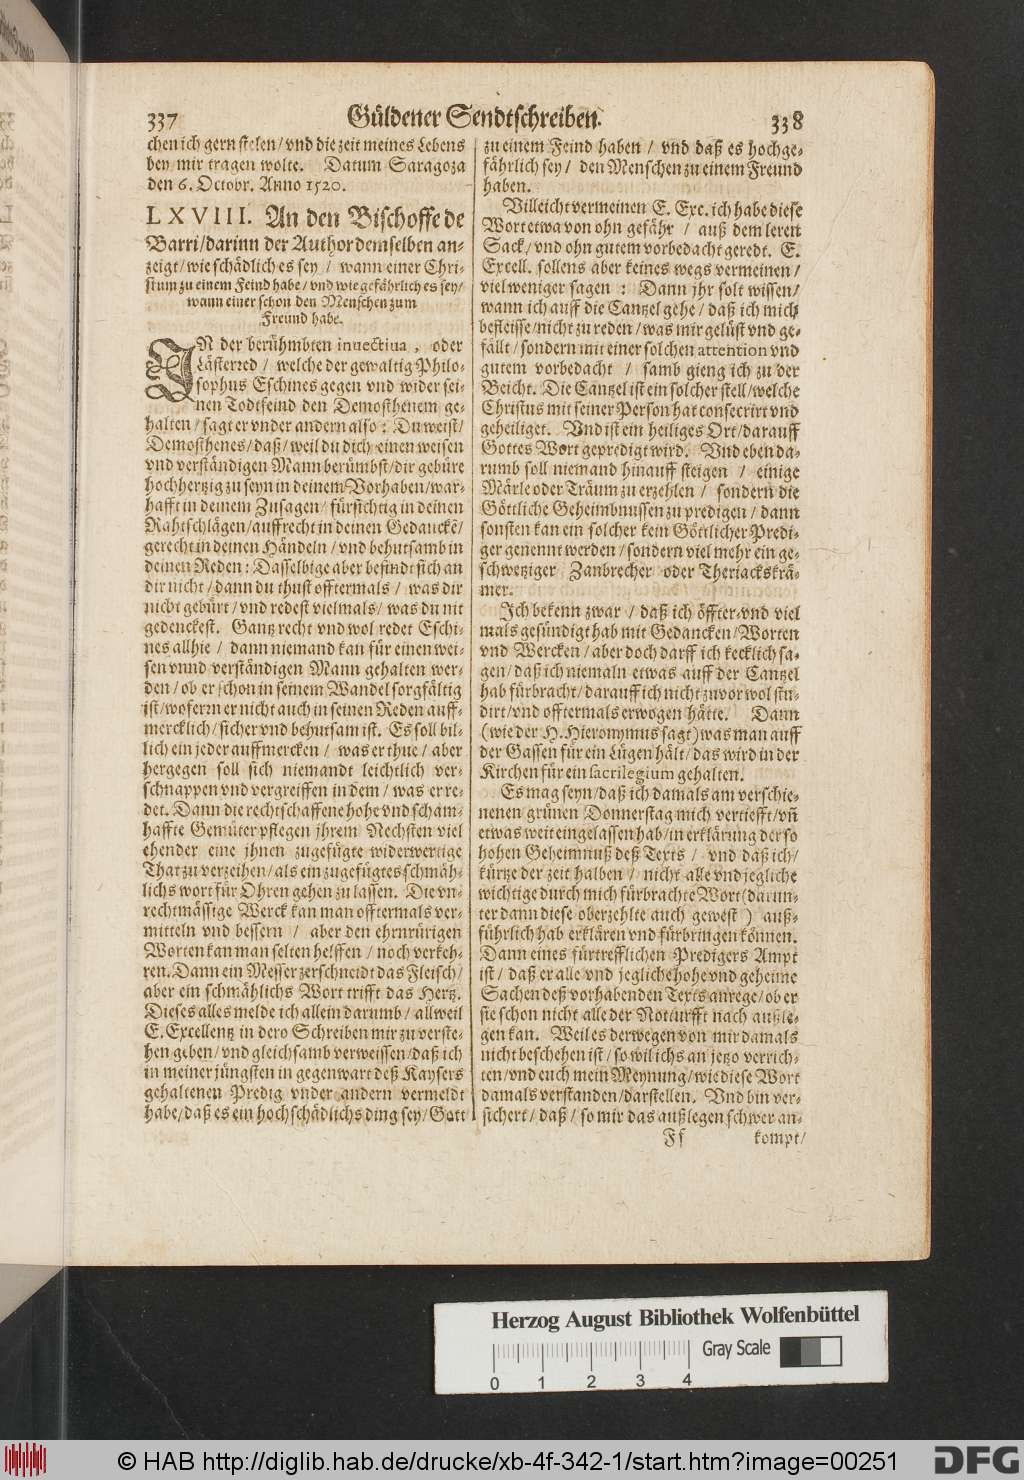 337
Güldener Sendtschreiben.
338
chen ich gern stelen / vnd die zeit meines Lebens
bey mir tragen wolte. Datum Saragoza
den 6. Octobr. Anno 1520.
LXVIII. An den Bischoffe de
Barri / darinn der Author demselben an-
zeigt / wie schädlich es sey / wann einer Chri-
stum zu einem Feind habe / vnd wie gefährlich es sey /
wann einer schon den Menschen zum
Freund habe.
IN der berühmbten inuectiua, oder
Lästerred / welche der gewaltig Philo-
sophus Eschines gegen vnd wider sei-
nen Todtfeind den Demosthenem ge-
halten / sagt er vnder andern also: Du weist /
Demosthenes / daß / weil du dich einen weisen
vnd verständigen Mann berümbst / dir gebüre
hochhertzig zu seyn in deinem Vorhaben / war-
hafft in deinem Zusagen / fürsichtig in deinen
Rahtschlägen / auffrecht in deinen Gedanckẽ /
gerecht in deinen Händeln / vnd behutsamb in
deinen Reden: Dasselbige aber befindt sich an
dir nicht / dann du thust offtermals / was dir
nicht gebürt / vnd redest vielmals / was du nit
gedenckest. Gantz recht vnd wol redet Eschi-
nes allhie / dann niemand kan für einen wei-
sen vnnd verständigen Mann gehalten wer-
den / ob er schon in seinem Wandel sorgfältig
ist / wofern er nicht auch in seinen Reden auff-
mercklich / sicher vnd behutsam ist. Es soll bil-
lich ein jeder auffmercken / was er thue / aber
hergegen soll sich niemandt leichtlich ver-
schnappen vnd vergreiffen in dem / was er re-
det. Dann die rechtschaffene hohe vnd scham-
haffte Gemüter pflegen jhrem Nechsten viel
ehender eine jhnen zugefügte widerwertige
That zu verzeihen / als ein zugefügtes schmäh-
lichs wort für Ohren gehen zu lassen. Die vn-
rechtmässige Werck kan man offtermals ver-
mitteln vnd bessern / aber den ehrnrürigen
Worten kan man selten helffen / noch verkeh-
ren. Dann ein Messer zerschneidt das Fleisch /
aber ein schmählichs Wort trifft das Hertz.
Dieses alles melde ich allein darumb / allweil
E. Excellentz in dero Schreiben mir zu verste-
hen geben / vnd gleichsamb verweissen / daß ich
in meiner jüngsten in gegenwart deß Kaysers
gehaltenen Predig vnder andern vermeldt
habe / daß es ein hochschädlichs ding sey / Gott
zu einem Feind haben / vnd daß es hochge-
fährlich sey / den Menschen zu einem Freund
haben.
Villeicht vermeinen E. Exc. ich habe diese
Wort etwa von ohn gefähr / auß dem leren
Sack / vnd ohn gutem vorbedacht geredt. E.
Excell. sollens aber keines wegs vermeinen /
viel weniger sagen: Dann jhr solt wissen /
wann ich auff die Cantzel gehe / daß ich mich
befleisse / nicht zu reden / was mir gelüst vnd ge-
fällt / sondern mit einer solchen attention vnd
gutem vorbedacht / samb gieng ich zu der
Beicht. Die Cantzel ist ein solcher stell / welche
Christus mit seiner Person hat consecrirt vnd
geheiliget. Vnd ist ein heiliges Ort / darauff
Gottes Wort gepredigt wird. Vnd eben da-
rumb soll niemand hinauff steigen / einige
Märle oder Träum zu erzehlen / sondern die
Göttliche Geheimbnussen zu predigen / dann
sonsten kan ein solcher kein Göttlicher Predi-
ger genennt werden / sondern viel mehr ein ge-
schwetziger Zanbrecher oder Theriackskrä-
mer.
Ich bekenn zwar / daß ich öffter- vnd viel
mals gesündigt hab mit Gedancken / Worten
vnd Wercken / aber doch darff ich kecklich sa-
gen / daß ich niemaln etwas auff der Cantzel
hab fürbracht / darauff ich nicht zuvor wol stu-
dirt / vnd offtermals erwogen hätte. Dann
(wie der H. Hieronymus sagt) was man auff
der Gassen für ein Lügen hält / das wird in der
Kirchen für ein sacrilegium gehalten.
Es mag seyn / daß ich damals am verschie-
nenen grünen Donnerstag mich vertiefft / vñ
etwas weit eingelassen hab / in erklärung der so
hohen Geheimnuß deß Texts / vnd daß ich /
kürtze der zeit halben / nicht alle vnd jegliche
wichtige durch mich fürbrachte Wort (darun-
ter dann diese oberzehlte auch gewest) auß-
führlich hab erklären vnd fürbringen können.
Dann eines fürtrefflichen Predigers Ampt
ist / daß er alle vnd jegliche hohe vnd geheime
Sachen deß vorhabenden Texts anrege / ob er
sie schon nicht alle der Noturfft nach außle-
gen kan. Weil es derwegen von mir damals
nicht beschehen ist / so wil ichs an jetzo verrich-
ten / vnd euch mein Meynung / wie diese Wort
damals verstanden / darstellen. Vnd bin ver-
sichert / daß / so mir das außlegen schwer an-
Ff
kompt /
Herzog August Bibliothek Wolfenbüttel
Gray Scale
0 1 2 3 4
© HAB http://diglib.hab.de/drucke/xb-4f-342-1/start.htm?image=00251
DFG